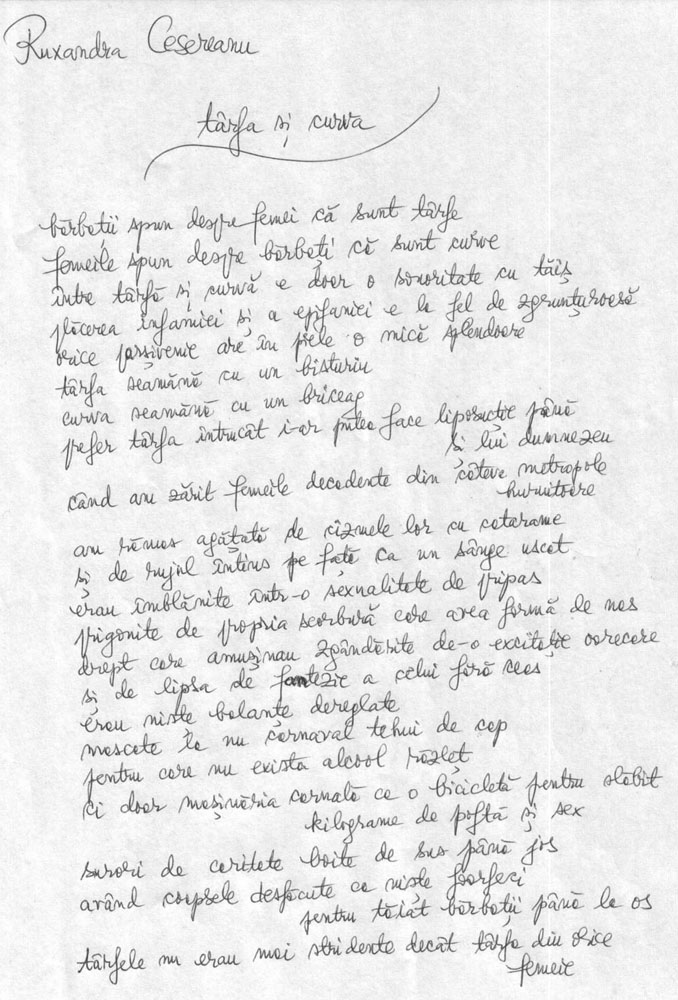 Ruxandra Cesereanu
târfa și curva
bărbații spun despre femei că sunt târfe
femeile spun despre bărbați că sunt curve
între târfă și curvă e doar o sonoritate cu tăiș
plăcerea infamiei și a epifaniei e la fel de zgrunțuroasă
orice parșivenie are în piele o mică splendoare
târfa seamănă cu un bisturiu
curva seamănă cu un briceag
prefer târfa întrucât i-ar putea face liposucție până
și lui dumnezeu
când am zărit femeile decadente din câteva metropole
humitoare
am rămas agățată de cizmele lor cu catarame
și de rujul întins pe față ca un sânge uscat
erau îmblănite într-o sexualitate de pripas
prigonite de propria scorbură care avea formă de nas
drept care amușinau zgândărite de-o excitație oarecare
și de lipsa de fantezie a celui fără ceas
erau niște balanțe dereglate
mascate la un carnaval tehui de cap
pentru care nu exista alcool răzleț
ci doar mașinăria carnală ca o bicicletă pentru slăbit
kilograme de poftă și sex
surori de caritate boite de sus până jos
având coapsele desfăcute ca niște foarfeci
pentru tăiat bărbații până la os
târfele nu erau mai stridente decât târfa din orice
femeie